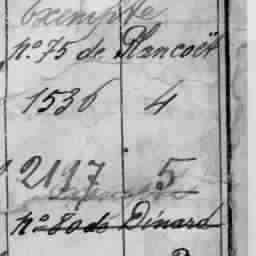 Exempte
n° 75 de Plancoët
1536 4
2197 5
n° 80 de Dinard